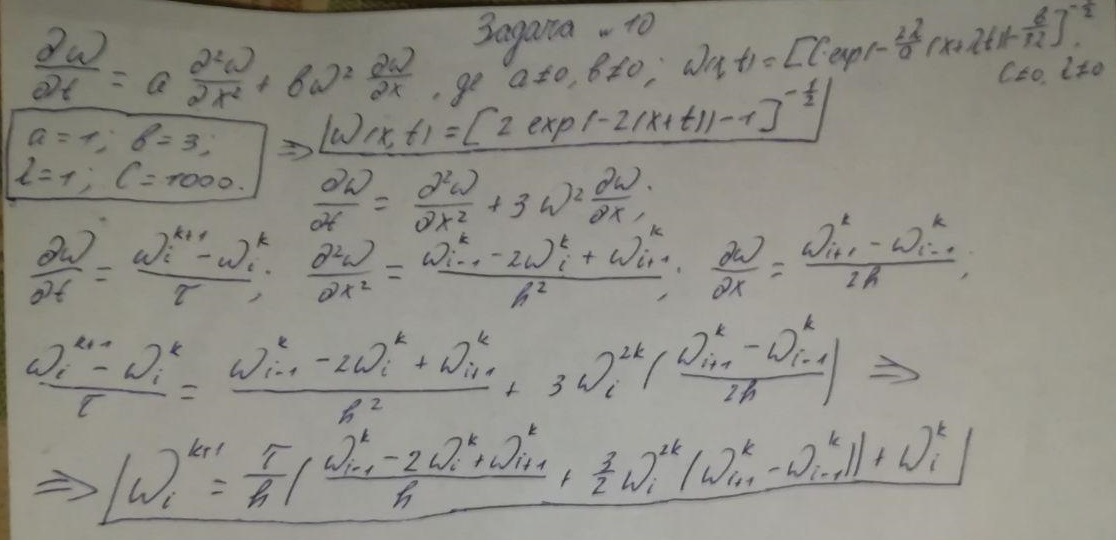 Задача №10
∂ω/∂t = a ∂²ω/∂x² + bω² ∂ω/∂x, де a≠0, b≠0; ω(x,t) = [C exp(-2λ/a (x+λt)) - b/3λ]^(-1/2). C≠0, λ≠0
a=1; b=3; λ=1; C=1000. ⇒ ω(x,t) = [2 exp(-2(x+t)) - 1]^(-1/2)
∂ω/∂t = ∂²ω/∂x² + 3ω² ∂ω/∂x;
∂ω/∂t = (ω_i^(k+1) - ω_i^k)/τ; ∂²ω/∂x² = (ω_(i-1)^k - 2ω_i^k + ω_(i+1)^k)/h²; ∂ω/∂x = (ω_(i+1)^k - ω_(i-1)^k)/2h;
(ω_i^(k+1) - ω_i^k)/τ = (ω_(i-1)^k - 2ω_i^k + ω_(i+1)^k)/h² + 3ω_i^(2k) ((ω_(i+1)^k - ω_(i-1)^k)/2h) ⇒
⇒ ω_i^(k+1) = τ/h ((ω_(i-1)^k - 2ω_i^k + ω_(i+1)^k)/h + 3/2 ω_i^(2k) (ω_(i+1)^k - ω_(i-1)^k)) + ω_i^k